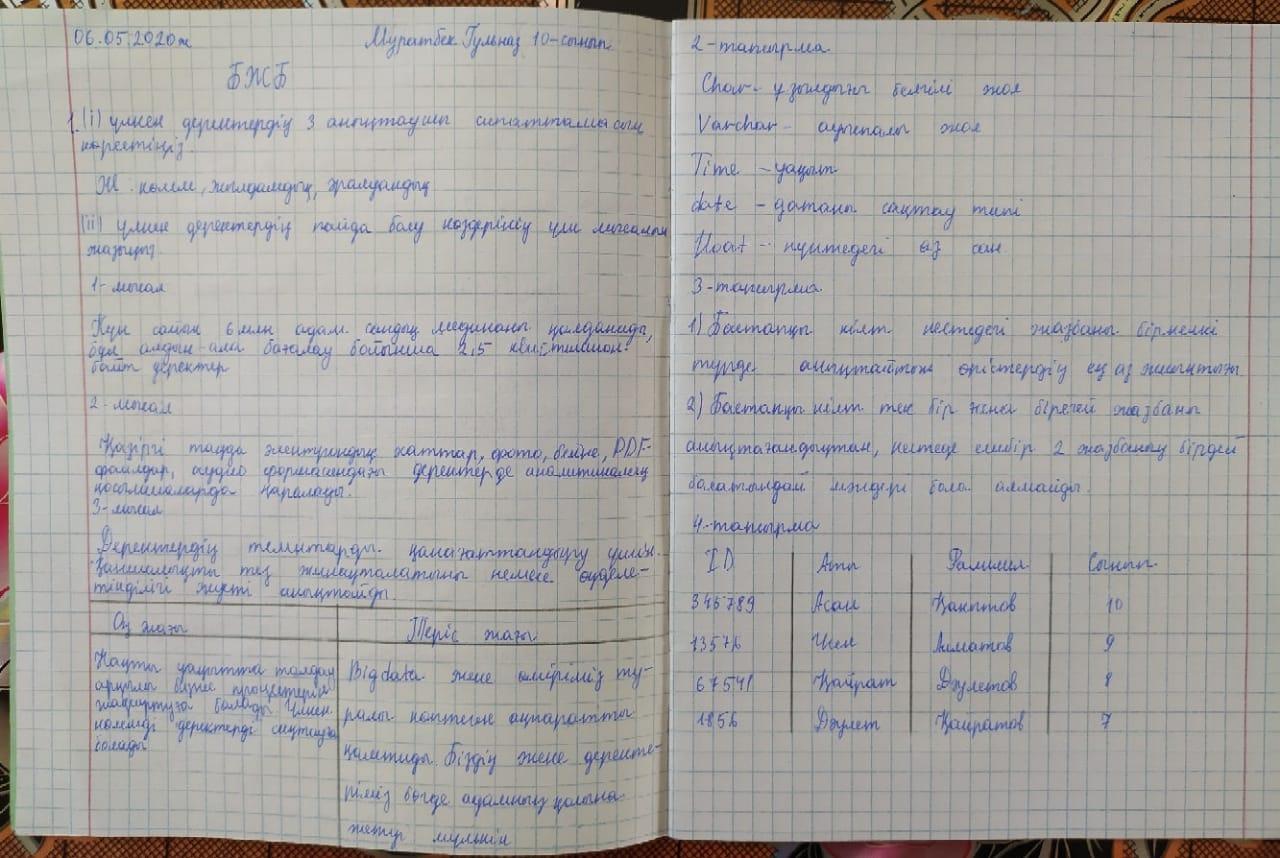 06.05.2020ж Муратбек Гульназ 10-сынып.
БЖБ
1. (i) үлкен деректердің 3 анықтаушы сипаттамасын
көрсетіңіз.
Ж. көлем, жылдамдық, әралуандық
(ii) үлкен деректердің пайда болу көздерінің үш мысалын
жазыңыз.
1-мысал
Күн сайын 6 млн адам сандық медианы қолданады,
бұл алдын-ала бағалау бойынша 2,5 квинтиллион
байт деректер
2-мысал
Қазіргі таңда электрондық хаттар, фото, бейне, PDF
файлдар, аудио форматындағы деректер де аналитикалық
қосымшаларда қаралады.
3-мысал
Деректердің талаптарды қанағаттандыру үшін.
Қаншалықты тез жинақталатыны немесе өңделе-
тіндігін анықтайды.
Оң жағы Теріс жағы
Нақты уақытта талдау
арқылы бизнес процестерін
жақсартуға болады. Үлкен
көлемді деректерді сақтауға
болады
Big data және өміріміз ту-
ралы көптеген ақпаратты
қамтиды. Біздің және деректе-
ріміз бөгде адамның қолына
жетуі мүмкін
2-тапсырма
Char - ұзындығы белгілі жол
Varchar - ауыспалы жол
Time - уақыт
date - датаны сақтау типі
float - нүктедегі аз сан
3-тапсырма
1) Бастапқы кілт кестедегі жазбаны бірмәнді
түрде анықтайтын өрістердің ең аз жиынтығы
2) Бастапқы кілт тек бір және бірегей жазбаны
анықтағандықтан, кестеде ешбір 2 жазбаның бірдей
болатындай мәндері бола алмайды.
4-тапсырма
ID Аты Фамилия Сынып
345789 Асан Қанатов 10
13576 Үсен Асматов 9
67541 Қайрат Дәулетов 8
1856 Дәулет Қайратов 7